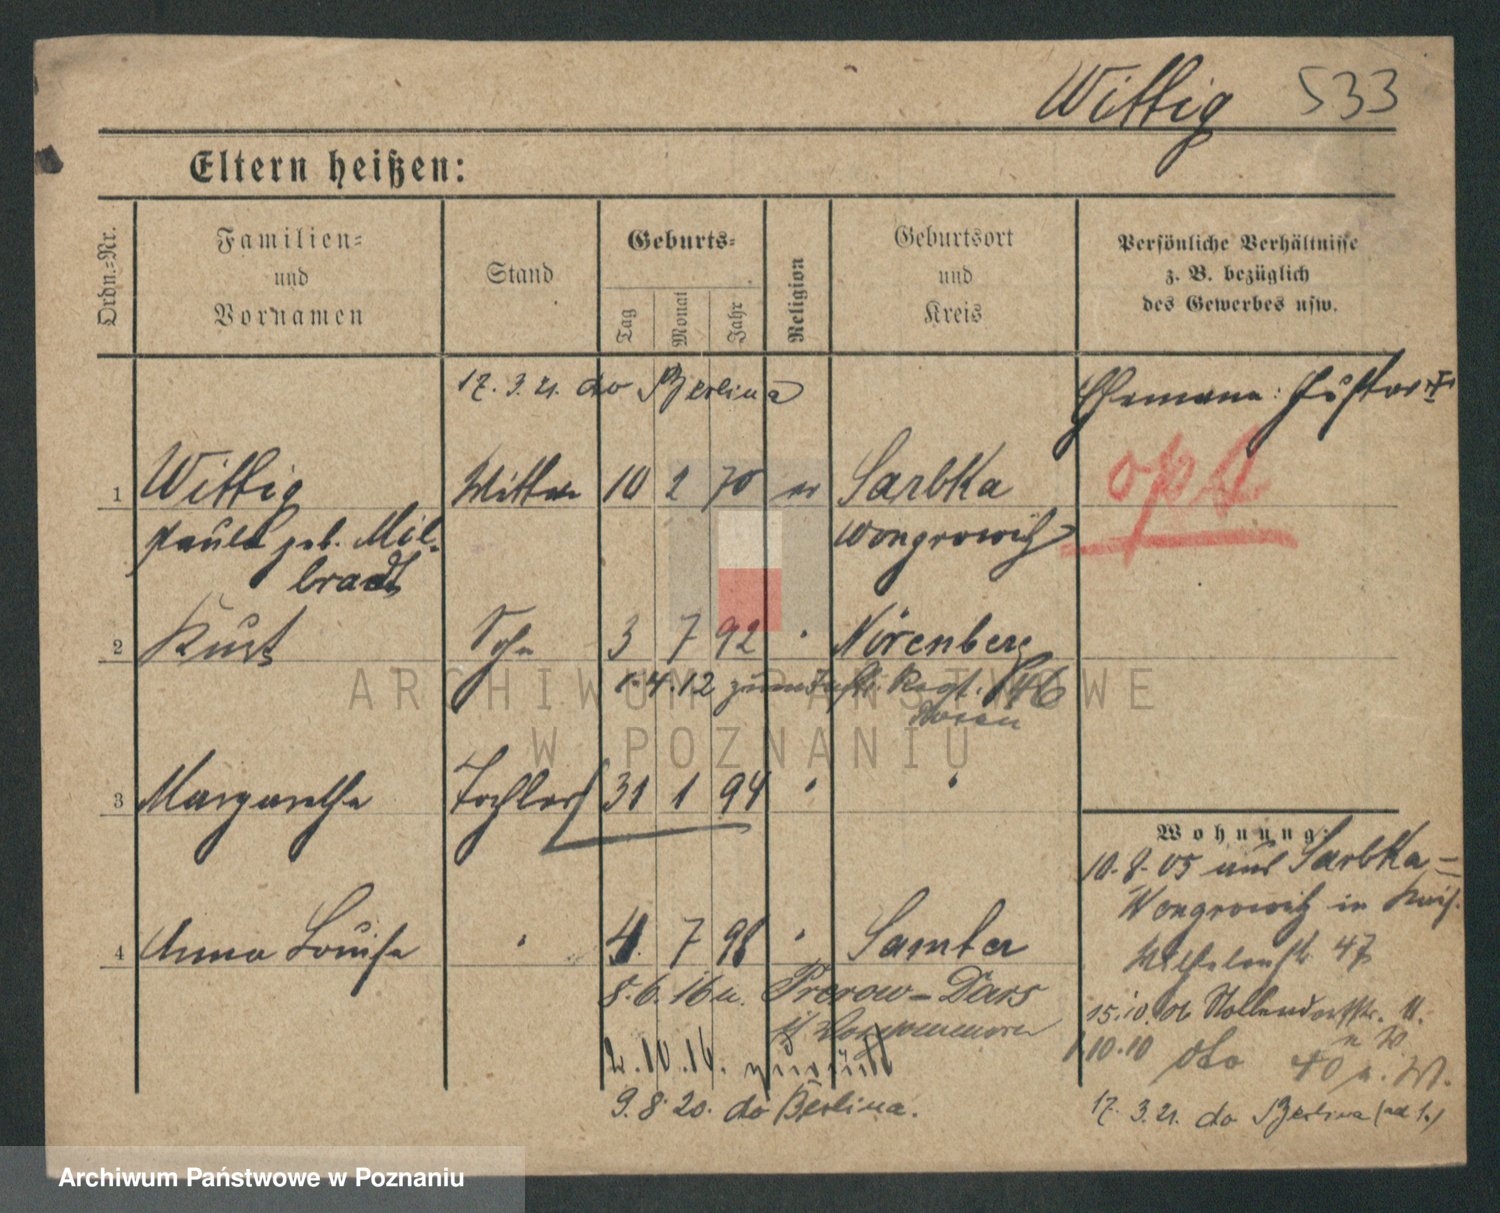 Wittig 533
Eltern heißen:
Ordn.-Nr.
Familien-
und
Vornamen
Stand
Geburts-
Tag
Monat
Jahr
Religion
Geburtsort
und
Kreis
Persönliche Verhältnisse
z. B. bezüglich
des Gewerbes usw.
17. 3. 21. do Berlina
Ehemann: Gustav
1 Wittig Witwe 10 2 70 ev Sarbka
Paula geb. Mil-
bradt
Wongrowitz
2 Kurt Sohn 3 7 92 " Nörenberg
1. 4. 12 zum Inft. Regt. 146
3 Margarethe Tochter 31 1 94 " "
4 Anna Louise " 4. 7 98 " Samter
8. 6. 16 n. Prerow-Dars
i/ Vorpommern
2. 10. 16. zurück
9. 8. 20. do Berlina.
Wohnung:
10. 8. 05 aus Sarbka-
Wongrowitz in
47
15. 10. 06 Nollendorfstr. 11.
1. 10. 10 dto 40
17. 3. 21. do Berlina (ad 1.)
ARCHIWUM PAŃSTWOWE
W POZNANIU
Archiwum Państwowe w Poznaniu